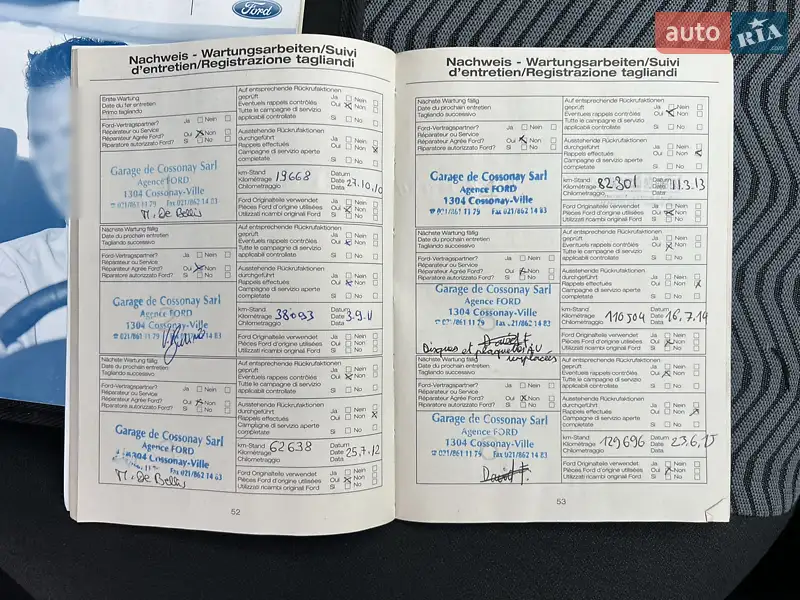 Ford
auto RIA
.com
Nachweis - Wartungsarbeiten/Suivi
d'entretien/Registrazione tagliandi
Erste Wartung
Date du 1er entretien
Primo tagliando
Ford-Vertragspartner?
Réparateur ou Service
Réparateur Agréé Ford?
Riparatore autorizzato Ford?
Ja Nein
Oui Non
Si No
Garage de Cossonay Sarl
Agence FORD
1304 Cossonay-Ville
021/861 11 79 Fax 021/862 14 83
M. De Bellis
Auf entsprechende Rückrufaktionen
geprüft
Eventuels rappels contrôlés
Tutte le campagne di servizio
applicabili controllate
Ja Nein
Oui Non
Si No
Ausstehende Rückrufaktionen
durchgeführt
Rappels effectués
Campagne di servizio aperte
completate
Ja Nein
Oui Non
Si No
km-Stand
Kilométrage
Chilometraggio
19668
Datum
Date
Data
27.10.10
Ford Originalteile verwendet
Pièces Ford d'origine utilisées
Utilizzati ricambi originali Ford
Ja Nein
Oui Non
Si No
Nächste Wartung fällig
Date du prochain entretien
Tagliando successivo
Ford-Vertragspartner?
Réparateur ou Service
Réparateur Agréé Ford?
Riparatore autorizzato Ford?
Ja Nein
Oui Non
Si No
Garage de Cossonay Sarl
Agence FORD
1304 Cossonay-Ville
021/861 11 79 Fax 021/862 14 83
Auf entsprechende Rückrufaktionen
geprüft
Eventuels rappels contrôlés
Tutte le campagne di servizio
applicabili controllate
Ja Nein
Oui Non
Si No
Ausstehende Rückrufaktionen
durchgeführt
Rappels effectués
Campagne di servizio aperte
completate
Ja Nein
Oui Non
Si No
km-Stand
Kilométrage
Chilometraggio
38093
Datum
Date
Data
3.9.11
Ford Originalteile verwendet
Pièces Ford d'origine utilisées
Utilizzati ricambi originali Ford
Ja Nein
Oui Non
Si No
Nächste Wartung fällig
Date du prochain entretien
Tagliando successivo
Ford-Vertragspartner?
Réparateur ou Service
Réparateur Agréé Ford?
Riparatore autorizzato Ford?
Ja Nein
Oui Non
Si No
Garage de Cossonay Sarl
Agence FORD
1304 Cossonay-Ville
Fax 021/862 14 83
M. De Bellis
Auf entsprechende Rückrufaktionen
geprüft
Eventuels rappels contrôlés
Tutte le campagne di servizio
applicabili controllate
Ja Nein
Oui Non
Si No
Ausstehende Rückrufaktionen
durchgeführt
Rappels effectués
Campagne di servizio aperte
completate
Ja Nein
Oui Non
Si No
km-Stand
Kilométrage
Chilometraggio
62638
Datum
Date
Data
25.7.12
Ford Originalteile verwendet
Pièces Ford d'origine utilisées
Utilizzati ricambi originali Ford
Ja Nein
Oui Non
Si No
52
Nachweis - Wartungsarbeiten/Suivi
d'entretien/Registrazione tagliandi
Nächste Wartung fällig
Date du prochain entretien
Tagliando successivo
Ford-Vertragspartner?
Réparateur ou Service
Réparateur Agréé Ford?
Riparatore autorizzato Ford?
Ja Nein
Oui Non
Si No
Garage de Cossonay Sarl
Agence FORD
1304 Cossonay-Ville
021/861 11 79 Fax 021/862 14 83
Auf entsprechende Rückrufaktionen
geprüft
Eventuels rappels contrôlés
Tutte le campagne di servizio
applicabili controllate
Ja Nein
Oui Non
Si No
Ausstehende Rückrufaktionen
durchgeführt
Rappels effectués
Campagne di servizio aperte
completate
Ja Nein
Oui Non
Si No
km-Stand
Kilométrage
Chilometraggio
82301
Datum
Date
Data
11.3.13
Ford Originalteile verwendet
Pièces Ford d'origine utilisées
Utilizzati ricambi originali Ford
Ja Nein
Oui Non
Si No
Nächste Wartung fällig
Date du prochain entretien
Tagliando successivo
Ford-Vertragspartner?
Réparateur ou Service
Réparateur Agréé Ford?
Riparatore autorizzato Ford?
Ja Nein
Oui Non
Si No
Garage de Cossonay Sarl
Agence FORD
1304 Cossonay-Ville
021/861 11 79 Fax 021/862 14 83
Disques et plaquettes AV
remplacées
Auf entsprechende Rückrufaktionen
geprüft
Eventuels rappels contrôlés
Tutte le campagne di servizio
applicabili controllate
Ja Nein
Oui Non
Si No
Ausstehende Rückrufaktionen
durchgeführt
Rappels effectués
Campagne di servizio aperte
completate
Ja Nein
Oui Non
Si No
km-Stand
Kilométrage
Chilometraggio
110304
Datum
Date
Data
16.7.14
Ford Originalteile verwendet
Pièces Ford d'origine utilisées
Utilizzati ricambi originali Ford
Ja Nein
Oui Non
Si No
Nächste Wartung fällig
Date du prochain entretien
Tagliando successivo
Ford-Vertragspartner?
Réparateur ou Service
Réparateur Agréé Ford?
Riparatore autorizzato Ford?
Ja Nein
Oui Non
Si No
Garage de Cossonay Sarl
Agence FORD
1304 Cossonay-Ville
021/861 11 79 Fax 021/862 14 83
David F.
Auf entsprechende Rückrufaktionen
geprüft
Eventuels rappels contrôlés
Tutte le campagne di servizio
applicabili controllate
Ja Nein
Oui Non
Si No
Ausstehende Rückrufaktionen
durchgeführt
Rappels effectués
Campagne di servizio aperte
completate
Ja Nein
Oui Non
Si No
km-Stand
Kilométrage
Chilometraggio
129696
Datum
Date
Data
23.6.15
Ford Originalteile verwendet
Pièces Ford d'origine utilisées
Utilizzati ricambi originali Ford
Ja Nein
Oui Non
Si No
53